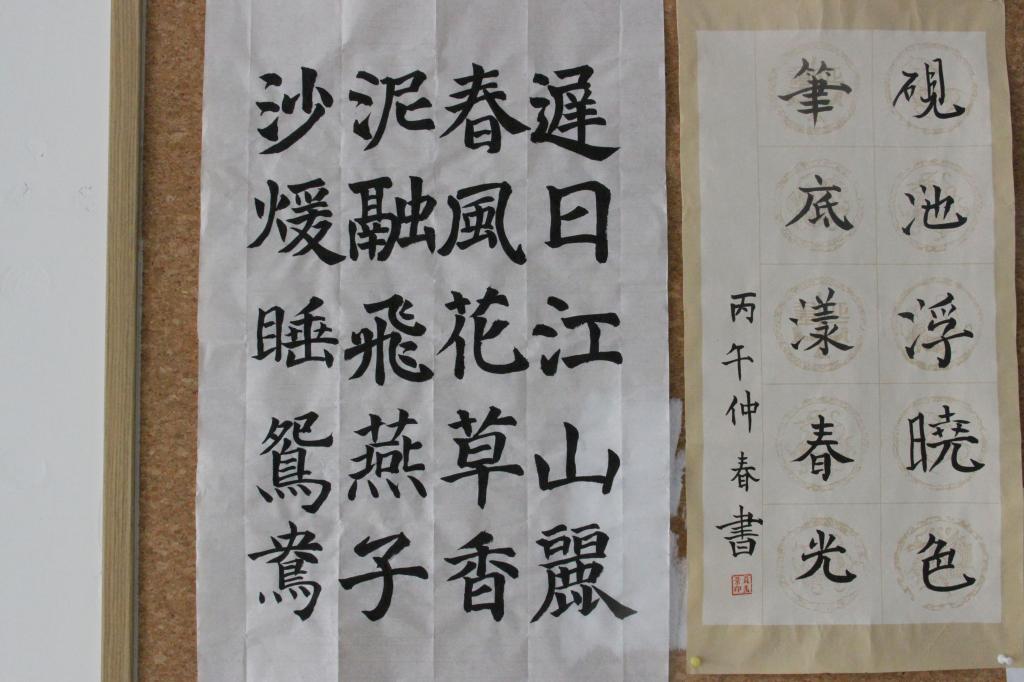 硯池浮曉色
筆底漾春光
丙午仲春書
遅日江山麗
春風花草香
泥融飛燕子
沙煖睡鴛鴦